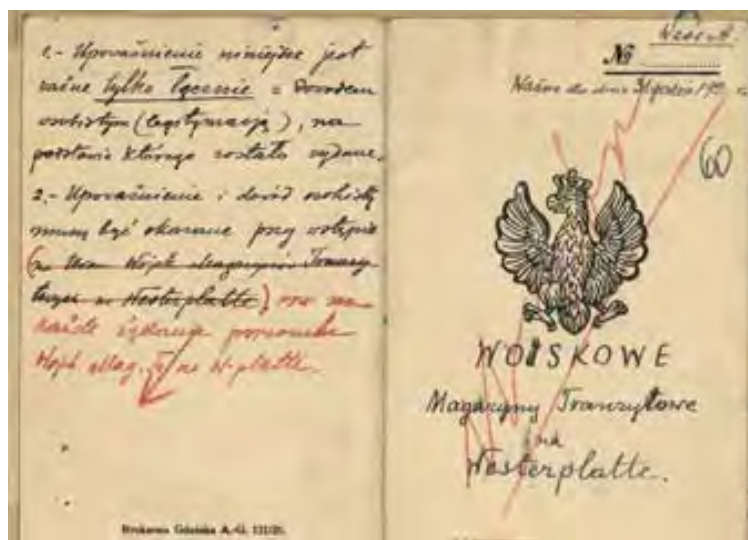 1.- Upoważnienie niniejsze jest
ważne tylko łącznie z dowodem
osobistym (legitymacją), na
podstawie którego zostało wydane.
2.- Upoważnienie i dowód osobisty
muszą być okazane przy wstępie
(na teren Wojsk. Magazynów Tranzy-
towych na Westerplatte) oraz na
każde żądanie
Wojsk. Mag. Tr. na W-platte.
Drukarnia Gdańska A.-G.
Wzór A.
№
Ważne do dnia 31 grudnia 19
60
WOJSKOWE
Magazyny Tranzytowe
na
Westerplatte.